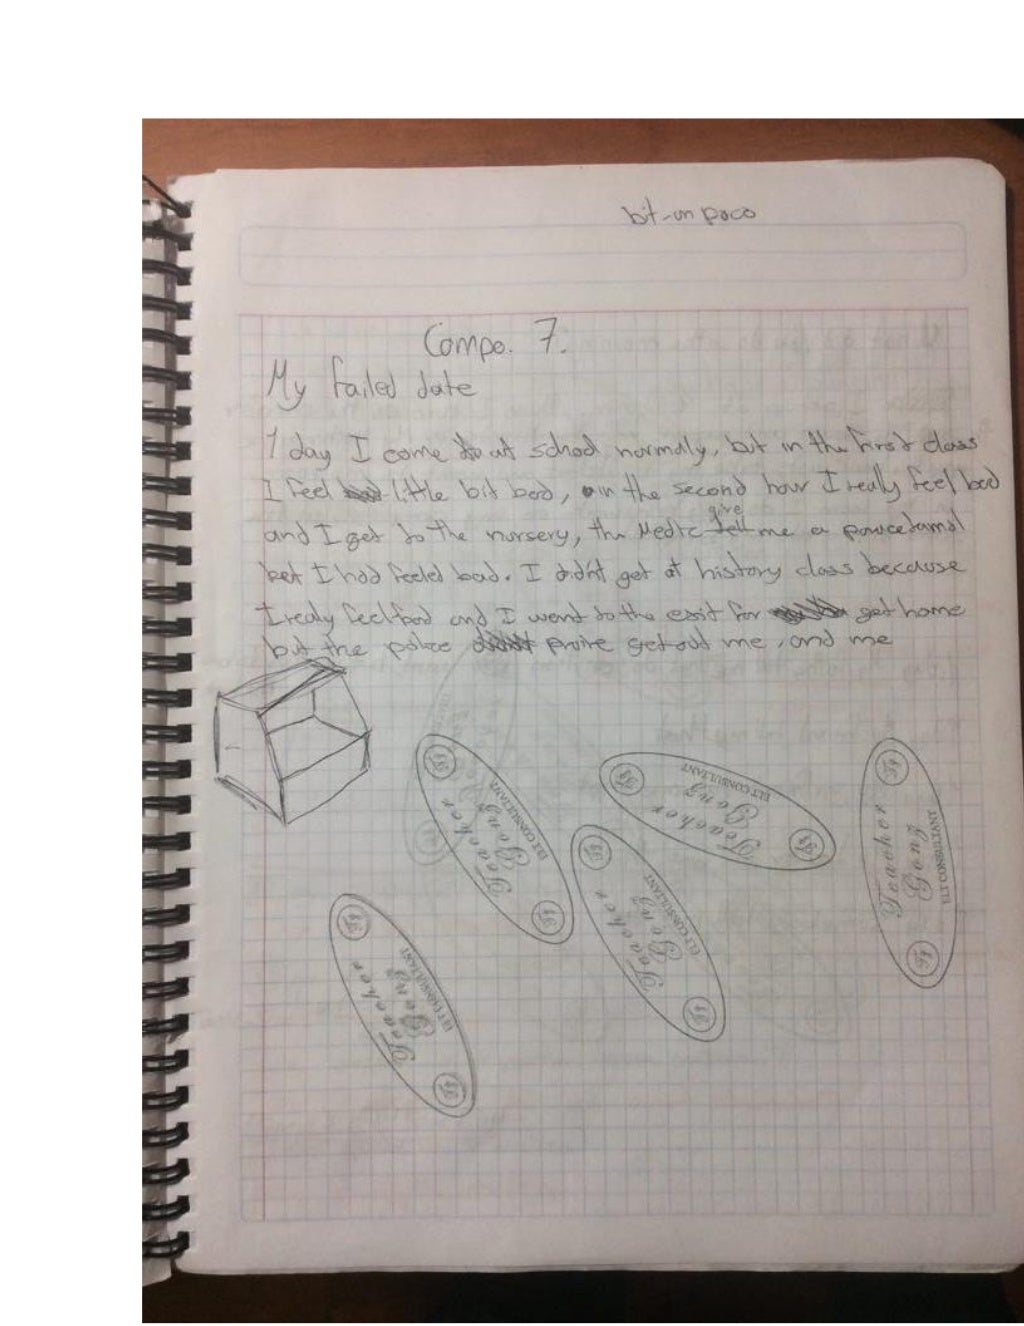 bit-un poco
Compo. 7.
My failed date
1 day I come at school normaly, but in the first class
I feel little bit bad, in the second hour I realy feel bad
and I get to the nursery, the Medic give me a paracetamol
bet I had feeled bad. I didn't get at history class because
I realy feel bad and I went to the exit for get home
but the police get out me, and me
Teacher
Gonz
ELT CONSULTANT
Teacher
Gonz
ELT CONSULTANT
Teacher
Gonz
ELT CONSULTANT
Teacher
Gonz
ELT CONSULTANT
Teacher
Gonz
ELT CONSULTANT